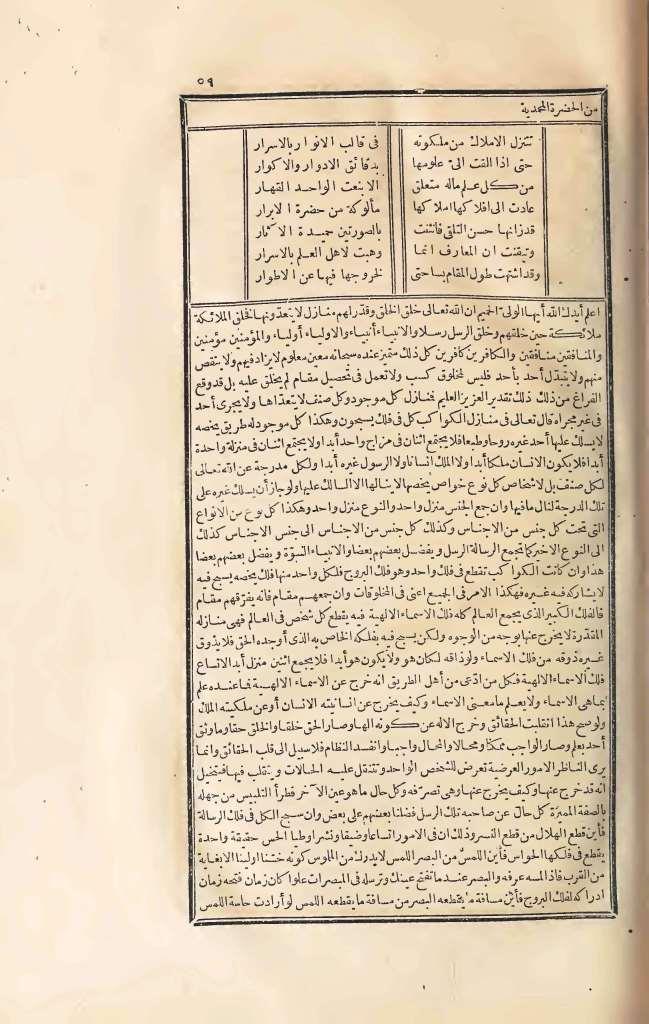 ٥٩
من الحضرة المحمدية
تتنزل الاملاك من ملكوته في قالب الانوار بالاسرار
حتى اذا القت اليّ علومها بدقائق الادوار والاكوار
من كل علم ماله متعلق الا بنعت الواحد القهار
عادت الى افلاكها املاكها مألوكة من حضرة الابرار
قد زانها حسن التلقي فانثنت بالصورتين حميدة الآثار
وتيقنت ان المعارف انما وهبت لاهل العلم بالاسرار
وقد اشتهت طول المقام بساحتي لخروجها فيها عن الاطوار
اعلم أيدك الله أيها الوليّ الحميم ان الله تعالى خلق الخلق وقدّرهم منازل لا يتعدّونها فخلق الملائكة
ملائكة حين خلقهم وخلق الرسل رسلا والانبياء أنبياء والاولياء أولياء والمؤمنين مؤمنين
والمنافقين منافقين والكافرين كافرين كل ذلك متميز عنده سبحانه معين معلوم لا يزاد فيهم ولا ينتقص
منهم ولا يتبدّل أحد بأحد فليس لمخلوق كسب ولا تعمل في تحصيل مقام لم يخلق عليه بل قد وقع
الفراغ من ذلك ذلك تقدير العزيز العليم فمنازل كل موجود وكل صنف لا يتعدّاها ولا يجرى أحد
في غير مجراه قال تعالى في منازل الكواكب كل في فلك يسبحون وهكذا كل موجود له طريق يخصه
لا يسلك عليها أحد غيره روحا وطبعا فلا يجتمع اثنان في مزاج واحد أبدا ولا يجتمع اثنان في منزلة واحدة
أبدا فلا يكون الانسان ملكا أبدا ولا الملك انسانا ولا الرسول غيره أبدا ولكل مدرجة عن الله تعالى
لكل صنف بل لاشخاص كل نوع خواص يخصها لا ينالها الا السالك عليها ولو جاز أن يسلك غيره على
تلك الدرجة لنال ما فيها وان جمع الجنس منزل واحد والنوع منزل واحد وهكذا كل نوع من الانواع
التي تحت كل جنس من الاجناس وكذلك كل جنس من الاجناس الى جنس الاجناس كذلك
الى النوع الاخير كما تجمع الرسالة الرسل ويفضل بعضهم بعضا والانبياء النبوّة ويفضل بعضهم بعضا
هذا وان كانت الكواكب تقطع في فلك واحد وهو فلك البروج فلكل واحد منها فلك يخصه يسبح فيه
لا يشاركه فيه غيره فهكذا الامر في الجميع اعني في المخلوقات وان جمعهم مقام فانه يفرّقهم مقام
فالفلك الكبير الذي يجمع العالم كله فلك الاسماء الالهية فيه يقطع كل شخص في العالم فهي منازله
المقدّرة لا يخرج عنها بوجه من الوجوه ولكن يسبح فيه بفلكه الخاص به الذي أوجده الحق فلا يذوق
غيره ذوقه من فلك الاسماء ولو ذاقه لكان هو ولا يكون هو أبدا فلا يجمع اثنين منزل أبدا لاتساع
فلك الاسماء الالهية فكل من ادّعى من أهل الطريق انه خرج عن الاسماء الالهية فما عنده علم
بما هي الاسماء ولا يعلم ما معنى الاسماء وكيف يخرج عن انسانيته الانسان أو عن ملكيته الملك
ولو صح هذا انقلبت الحقائق وخرج الاله عن كونه الها وصار الحق خلقا والخلق حقا وما وثق
أحد بعلم وصار الواجب ممكنا ومحالا والمحال واجبا وانفسد النظام فلا سبيل الى قلب الحقائق وانما
يرى الناظر الامور العرضية تعرض للشخص الواحد وتنتقل عليه الحالات ويتقلب فيها فيتخيل
انه قد خرج عنها وكيف يخرج عنها وهي تصرّفه وكل حال ما هو عين الآخر فطرأ التلبيس من جهله
بالصفة المميزة كل حال عن صاحبه تلك الرسل فضلنا بعضهم على بعض وان سبح الكل في فلك الرسالة
فأين قطع الهلال من قطع النسر وذلك ان في الامور اتساعا وضيقا ونشرا وطيا الحس حقيقة واحدة
يقطع في فلكها الحواس فأين اللمس من البصر اللمس لا يدرك من الملموس كونه خشنا او لينا الا بغاية
من القرب فاذا لمسه عرفه والبصر عند ما تفتح عينك وترسله في المبصرات علوا كان زمان فتحه زمان
ادراكه لفلك البروج فأين مسافة ما يقطعه البصر من مسافة ما يقطعه اللمس لو أرادت حاسة اللمس